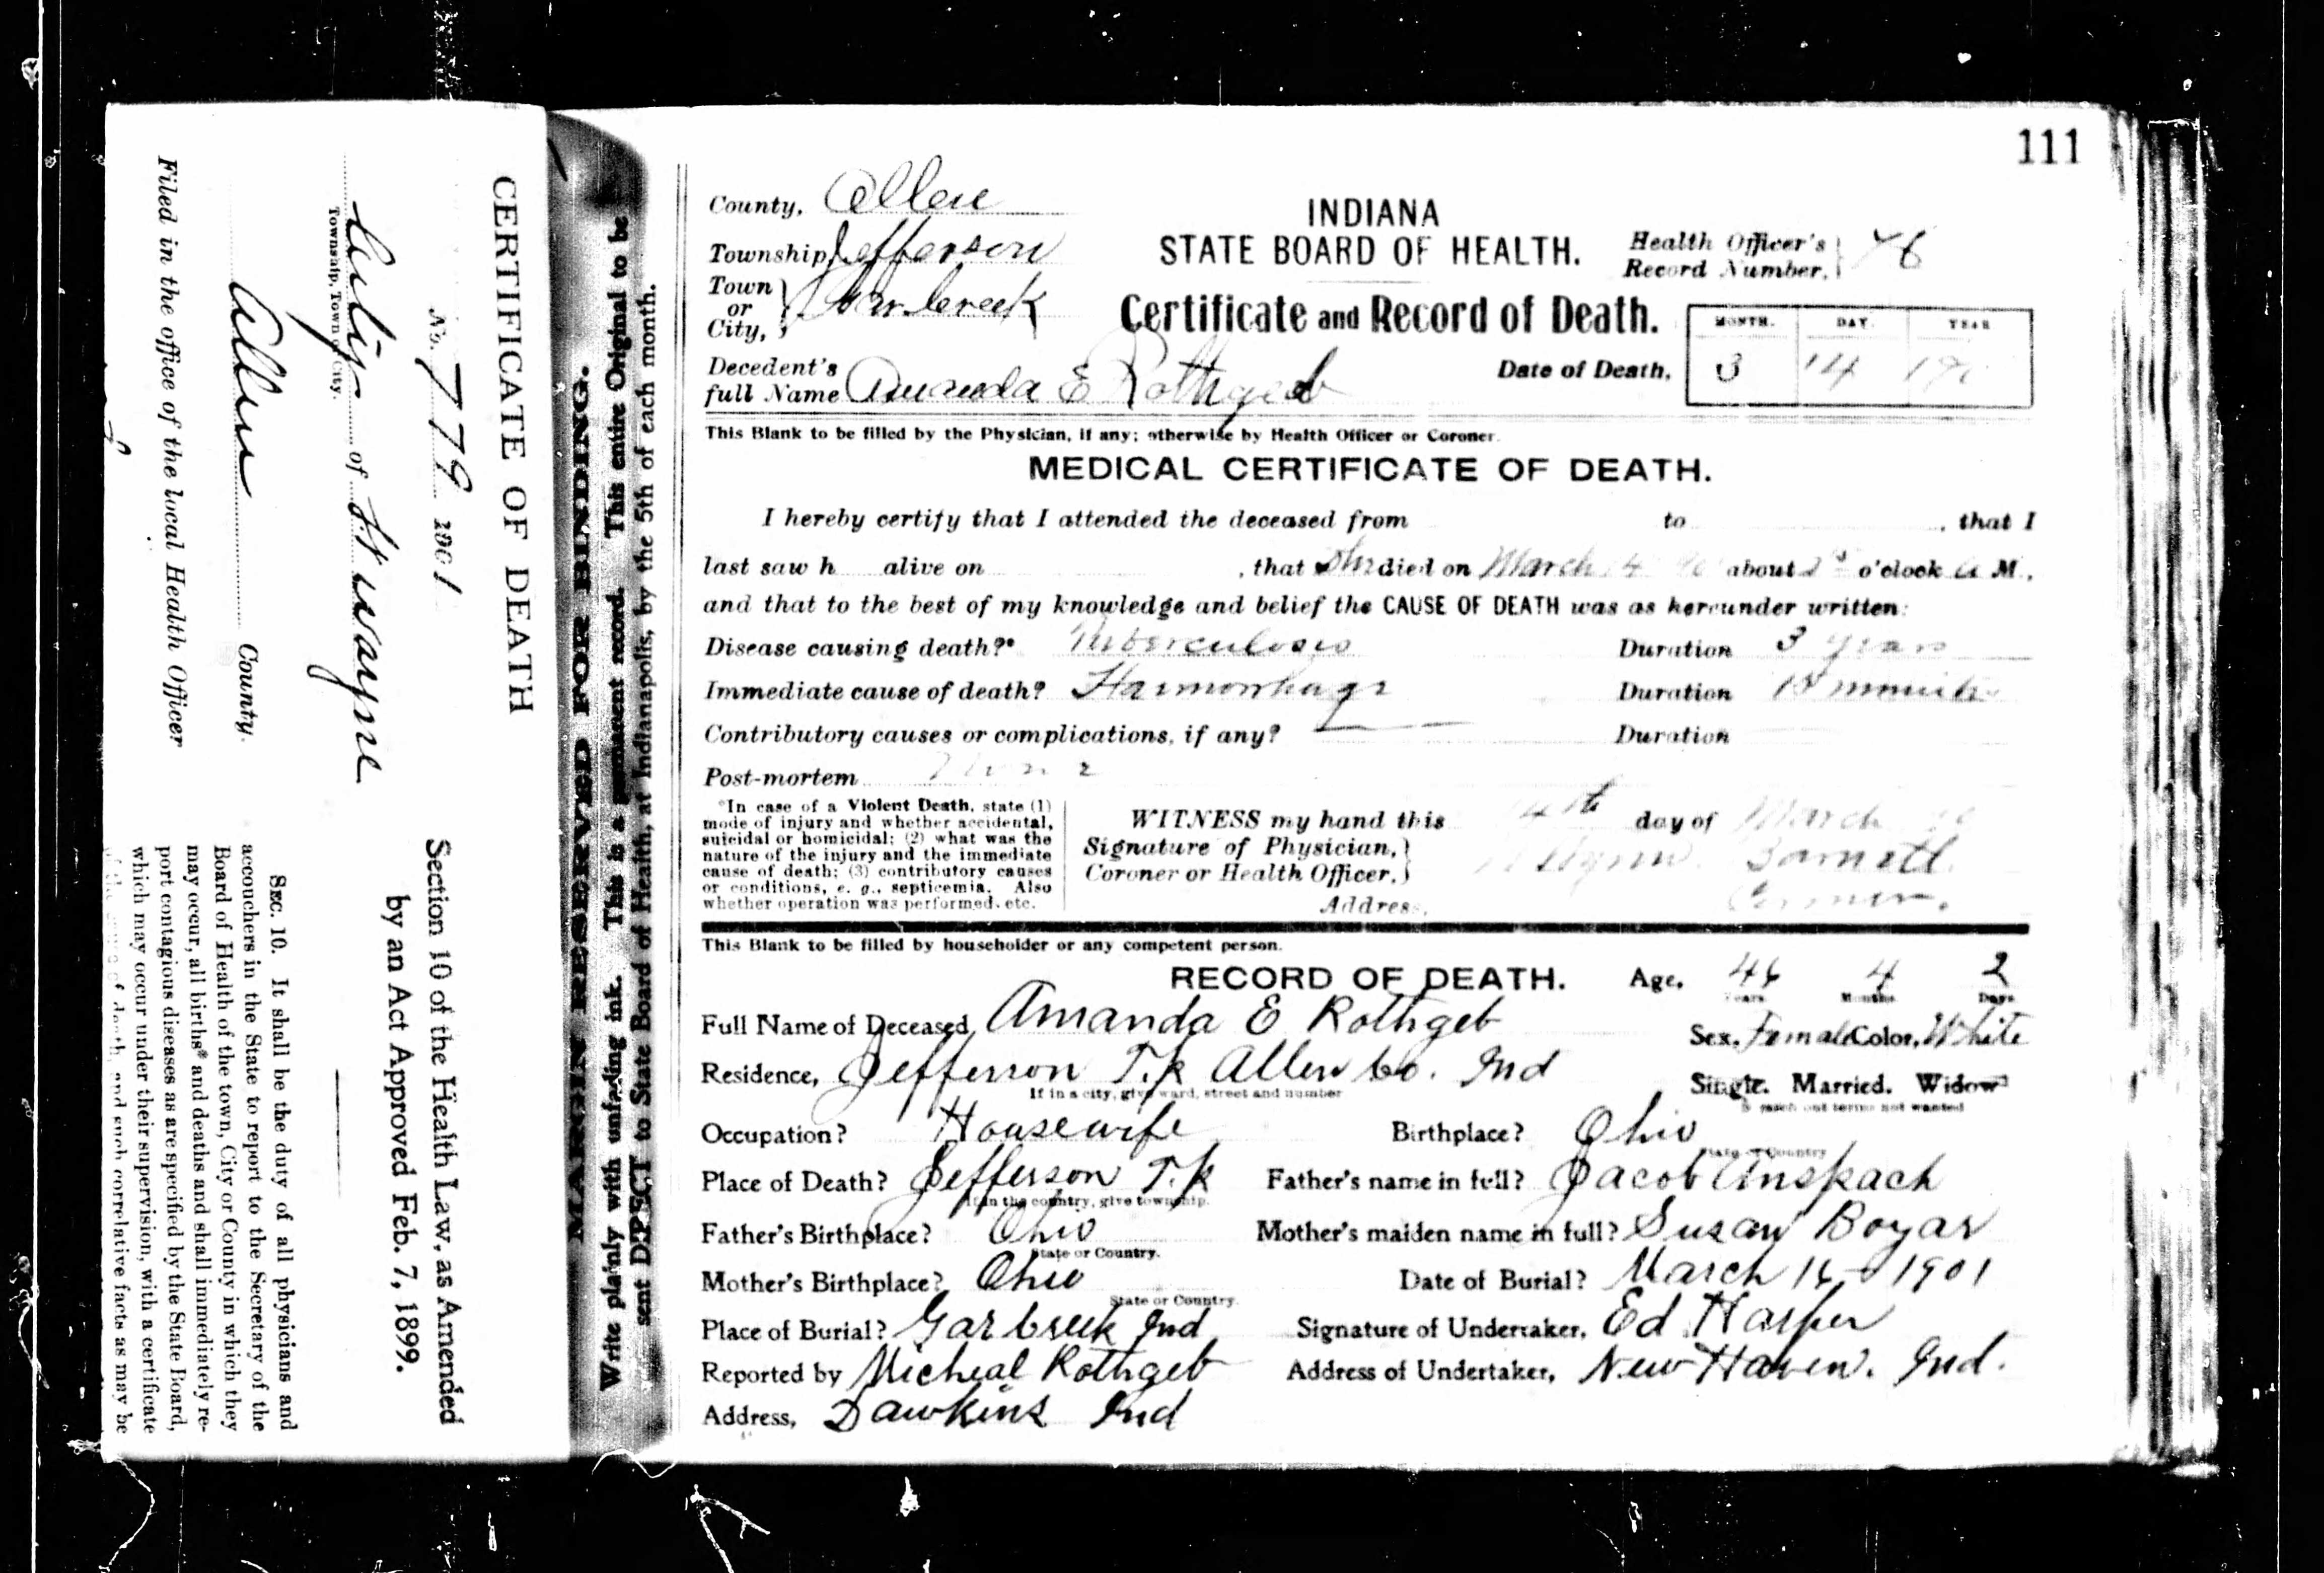 111
CERTIFICATE OF DEATH
No. 779 1901
City of Ft Wayne
Township, Town or City.
Allen County.
Filed in the office of the local Health Officer
Section 10 of the Health Law, as Amended
by an Act Approved Feb. 7, 1899.
SEC. 10. It shall be the duty of all physicians and
accouchers in the State to report to the Secretary of the
Board of Health of the town, City or County in which they
may occur, all births* and deaths and shall immediately re-
port contagious diseases as are specified by the State Board,
which may occur under their supervision, with a certificate
of the cause of death and such correlative facts as may be
MARGIN RESERVED FOR BINDING.
Write plainly with unfading ink. This is a permanent record. This entire Original to be
sent DIRECT to State Board of Health, at Indianapolis, by the 5th of each month.
County, Allen
Township, Jefferson
Town or City,
INDIANA
STATE BOARD OF HEALTH.
Health Officer's Record Number,
Certificate and Record of Death.
Decedent's full Name Amanda E Rothgeb
Date of Death, MONTH. DAY. YEAR
3 14 190
This Blank to be filled by the Physician, if any; otherwise by Health Officer or Coroner.
MEDICAL CERTIFICATE OF DEATH.
I hereby certify that I attended the deceased from to , that I
last saw h alive on , that She died on March 14 about o'clock a M.,
and that to the best of my knowledge and belief the CAUSE OF DEATH was as hereunder written:
Disease causing death?* Tuberculosis Duration 3 years
Immediate cause of death? Haemorrhage Duration 15 minutes
Contributory causes or complications, if any? Duration
Post-mortem None
*In case of a Violent Death, state (1)
mode of injury and whether accidental,
suicidal or homicidal; (2) what was the
nature of the injury and the immediate
cause of death; (3) contributory causes
or conditions, e. g., septicemia. Also
whether operation was performed, etc.
WITNESS my hand this 14th day of March
Signature of Physician,
Coroner or Health Officer, Barnett
Address, Coroner.
This Blank to be filled by householder or any competent person.
RECORD OF DEATH. Age, 46 4 2
Years Months Days
Full Name of Deceased, Amanda E Rothgeb
Sex, Female Color, White
Residence, Jefferson T.p Allen Co. Ind
If in a city, give ward, street and number
Single. Married. Widow
Scratch out terms not wanted
Occupation? Housewife Birthplace? Ohio
State or Country
Place of Death? Jefferson T.p Father's name in full? Jacob Anspach
If in the country, give township.
Father's Birthplace? Ohio Mother's maiden name in full? Susan Boyar
State or Country.
Mother's Birthplace? Ohio Date of Burial? March 16 - 1901
State or Country.
Place of Burial? Gar Creek Ind Signature of Undertaker, Ed Harper
Reported by Micheal Rothgeb Address of Undertaker, New Haven. Ind.
Address, Dawkins Ind